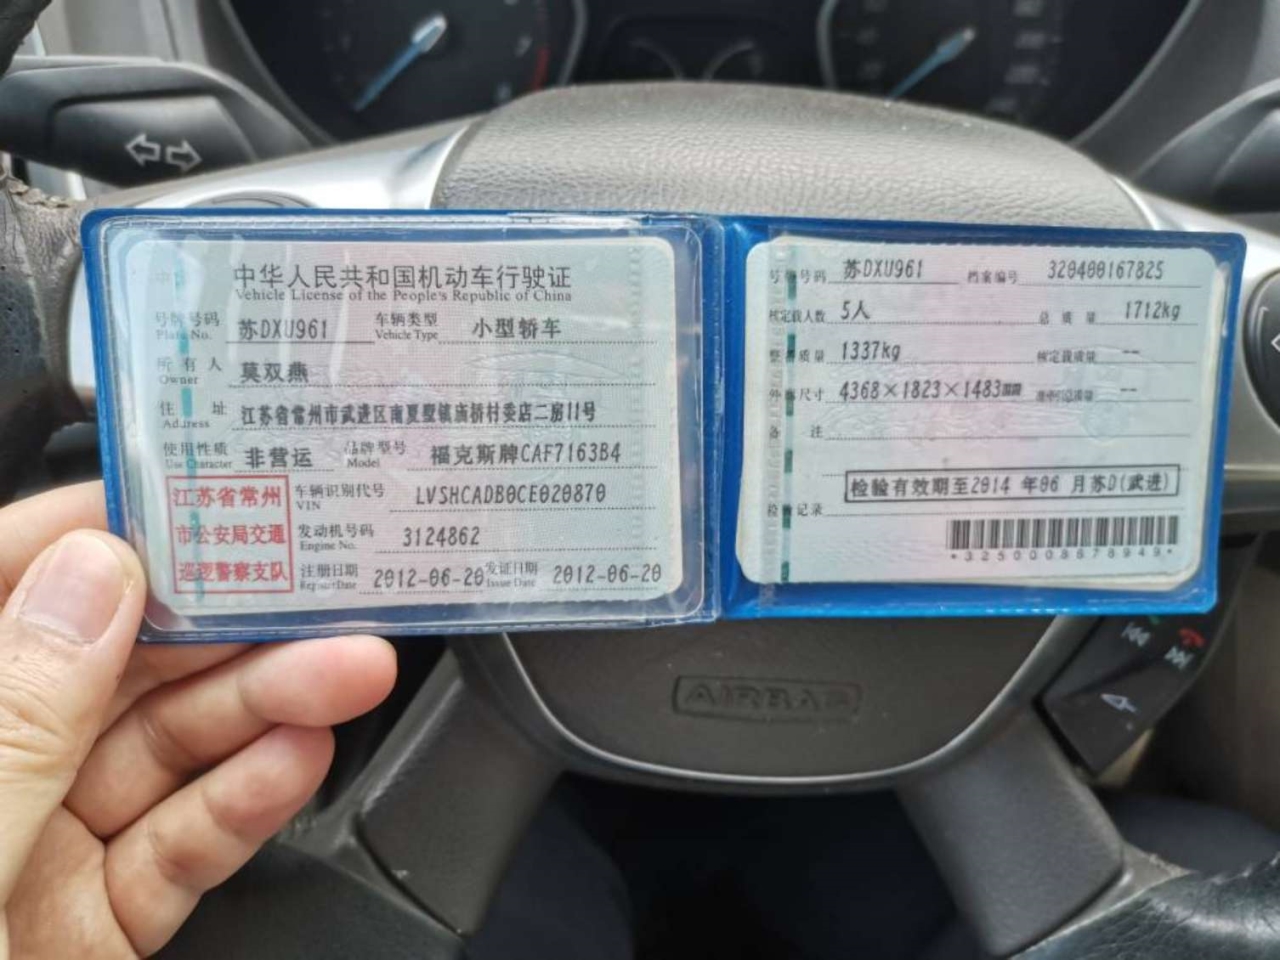 中华人民共和国机动车行驶证
Vehicle License of the People's Republic of China
号牌号码 苏DXU961 车辆类型 小型轿车
Plate No. Vehicle Type
所有人 莫双燕
Owner
住址 江苏省常州市武进区南夏墅镇庙桥村委店二房11号
Address
使用性质 非营运 品牌型号 福克斯牌CAF7163B4
Use Character Model
江苏省常州
市公安局交通
巡逻警察支队
车辆识别代号 LVSHCADB0CE020870
VIN
发动机号码 3124862
Engine No.
注册日期 2012-06-20 发证日期 2012-06-20
Register Date Issue Date
号牌号码 苏DXU961 档案编号 320400167825
核定载人数 5人 总质量 1712kg
整备质量 1337kg 核定载质量 --
外廓尺寸 4368×1823×1483mm 准牵引总质量 --
备注
检验有效期至2014 年06 月苏D(武进)
检验记录
*3250008878949*
AIRBAG